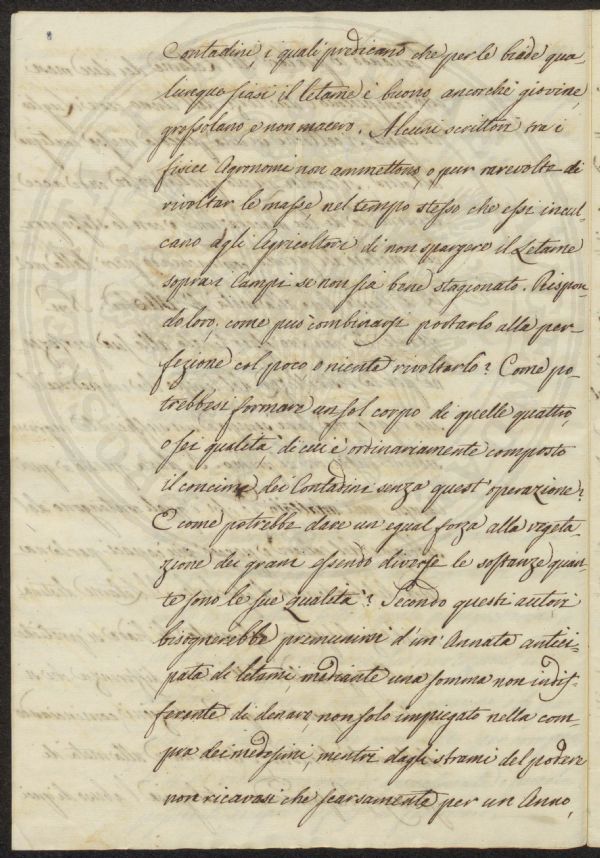 Contadini, i quali predicano che per le biade qua,
lunque siasi il letame è buono, ancorchè giovine,
grossolano, e non macro. Alcuni scrittori tra i
fisici Agronomi non ammettono, o pur rarevolte di
rivoltar le masse, nel tempo stesso che essi incul
cano agli Agricoltori di non spargere il Letame
sopra i Campi se non sia bene stagionato. Rispon
do loro, come può combinarsi portarlo alla per
fezione col poco o niente rivoltarlo? Come po
trebbesi formare un sol corpo di quelle quattro,
o sei qualità, di cui è ordinariamente composto
il concime dei Contadini senza quest'operazione?
E come potrebbe dare un'egual forza alla vegeta
zione dei grani essendo diverse le sostanze quan
te sono le sue qualità? Secondo questi autori
bisognerebbe premunirsi d'un'Annata antici,
pata di letami, mediante una somma non indif,
ferente di denaro, non solo impiegato nella com
pra dei medesimi, mentre dagli strami del podere
non ricavasi che scarsamente per un Anno,